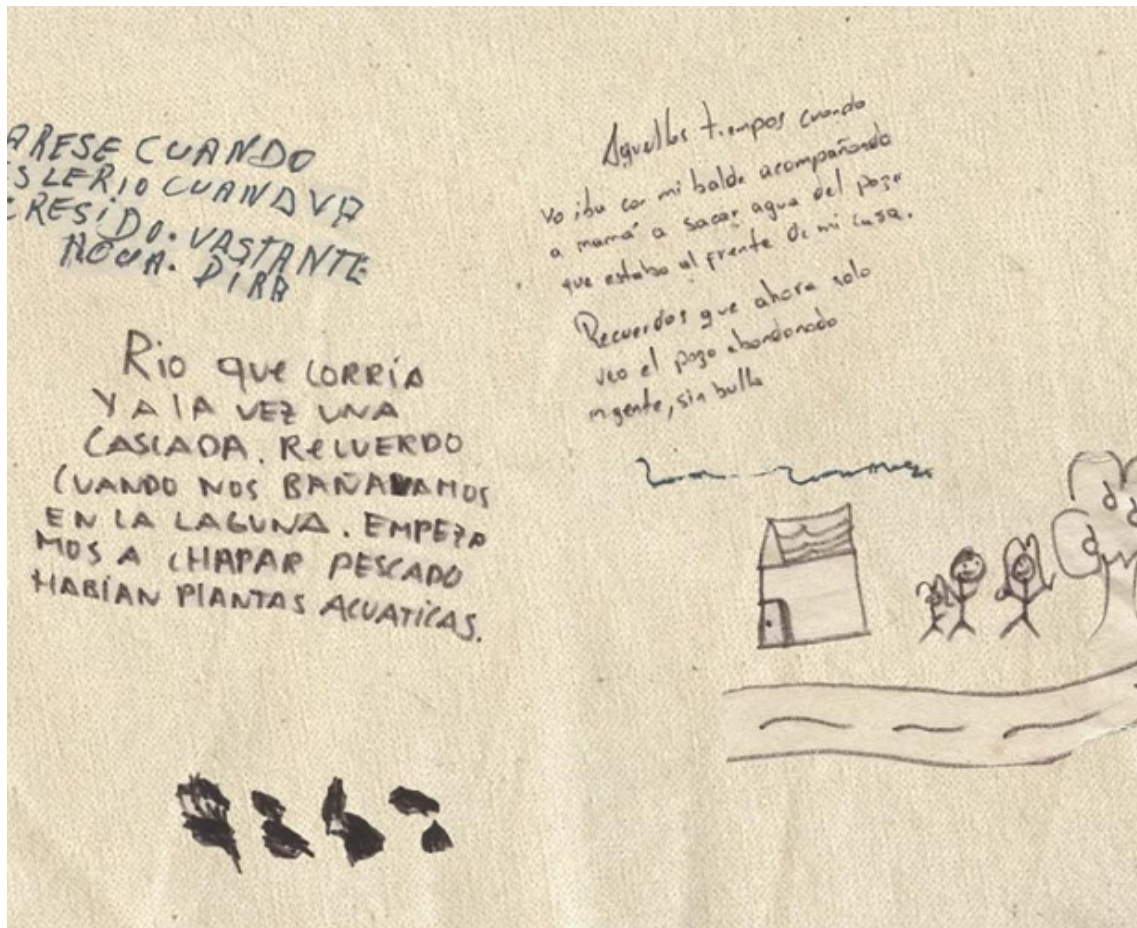 ARESE CUANDO
S LE RIO CUANDVA
CRESIDO. VASTANTE
AGUA. DIRA
Rio que CORRÍA
Y A LA VEZ UNA
CASCADA. RECUERDO
CUANDO NOS BAÑAVAMOS
EN LA LAGUNA. EMPEZA
MOS A CHAPAR PESCADO
HABÍAN PLANTAS ACUATICAS.
Aquellos tiempos cuando
Yo iba con mi balde acompañando
a mamá a sacar agua del pozo
que estaba al frente de mi casa.
Recuerdos que ahora solo
veo el pozo abandonado
gente, sin bulla